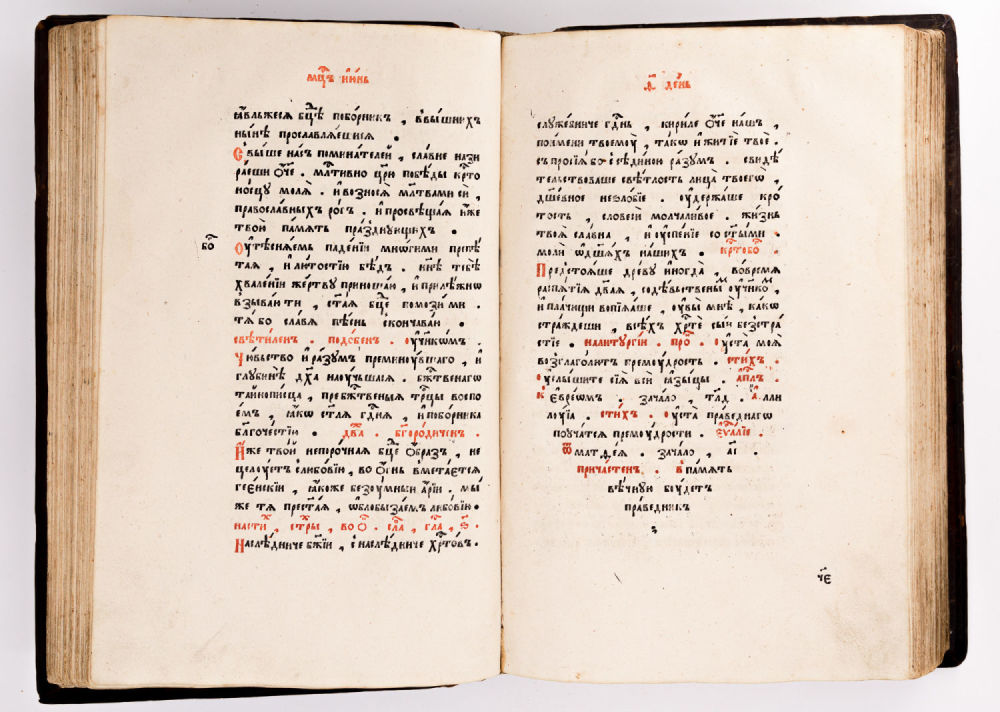 мц҃ъ і҆ю́нь
ꙗ҆́вльжеся бц҃е побо́рникъ , в̾вы́шнихъ
ны́нѣ прославля́ешися .
Свы́ше на́съ помина́телей , сла́вне нази
ра́еши ѻ҆́ч҃е . мл҃тивно цр҃ю побѣ́ды кр҃то
но́сцу моля̀ . и҆ вознося̀ мл҃твами сѝ ,
правосла́вныхъ ро́гъ . и҆ просвѣща́я и҆́же
твою̀ па́мять пра́зднующихъ .
бо҃
Оу҆тѣсня́емь паде́нїи мно́гими пречⷭ҇
тая , и҆ лю́тостїю бѣ́дъ . нн҃ѣ тебѣ̀
хвале́нїи же́ртву приношаю , и҆ прилѣ́жнѡ
взыва́ю ти , ст҃а́я бц҃е помози́ ми .
тя́ бо сла́вя пѣ́снь сконча́ваю .
свѣти́ленъ . подо́бенъ . оу҆чн҃ко́мъ .
Чю́вьство и҆ ра́зумъ премину́вшаго , и҆
глубинѣ̀ дх҃а научьшася . бж҃твенагѡ
та́йнопи́сца , пребж҃твеныя трⷪ҇цы воспо
е́мъ , ꙗ҆́кѡ стлѧ̀ гдⷭ҇ня , и҆ побо́рника
благоче́стїю . два̀ . бг҃оро́диченъ .
И҆́же тво́й непоро́чная бц҃е ѻ҆́бразъ , не
целоу́етъ слюбо́вїю , во ѻ҆́гнь вмета́ется
гее́нскїи , ꙗ҆́коже безоу́мныи а҆́рїи . мы́
же тя̀ прест҃а́я , ѡ҆блобыза́емъ любо́вїю .
на стиⷯ , стⷯры , во ѻ҃ . сла̀ , гла̀ , ѕ҃ .
Наслѣ́дниче бж҃їи , снаслѣ́дниче хрⷭ҇то́въ .
д҃ де́нь
служе́бниче гдⷭ҇нь , кири́ле ѻ҆́ч҃е на́шъ ,
по и҆́мени твоему̀ , та́кѡ и҆ житїѐ твоѐ .
съ просїя́ бо с сѣдино́ю ра́зумъ . свидѣ́
тельствоваше свѣ́тлость лица̀ твоегѡ̀ ,
дш҃е́вное незло́бїе . оу҆держа́ше кро́
тость , словесѝ молча́ливое . жи́знь
твоя̀ сла́вна , и҆ оу҆спе́нїе со ст҃ы́ми .
молѝ ѡ҆ дш҃а́хъ на́шихъ . крⷭ҇тобо҃ .
Предстоя́ше дре́ву и҆ногда̀ , во вре́мя
распя́тїя дв҃ая , со дѣ́вьственымъ оу҆чн҃ко́мъ ,
и҆ пла́чющи вопїя́ше , оу҆вы̀ мнѣ̀ , ка́кѡ
стра́ждеши , всѣ́хъ хрⷭ҇тѐ сы́и безстра́
стїе . на литургі́и . про҃ . оу҆ста̀ моя̀
возглаго́лютъ прему́дрость . сти́хъ .
оу҆слы́шите сїя̀ вси̑ ꙗ҆зы́цы . а҆пⷭ҇лъ .
к̾ е҆вре́ѡмъ . зача́ло , тл҃д . а҆ллилу́їа . сти́хъ . оу҆ста̀ пра́веднагѡ
поуча́тся прему́дрости . є҆ѵⷢ҇а́лїе .
ѿ матѳе́я . зача́ло , а҃і .
прича́стенъ . в̾ па́мять
вѣ́чную бу́детъ
пра́ведникъ
ч҃е